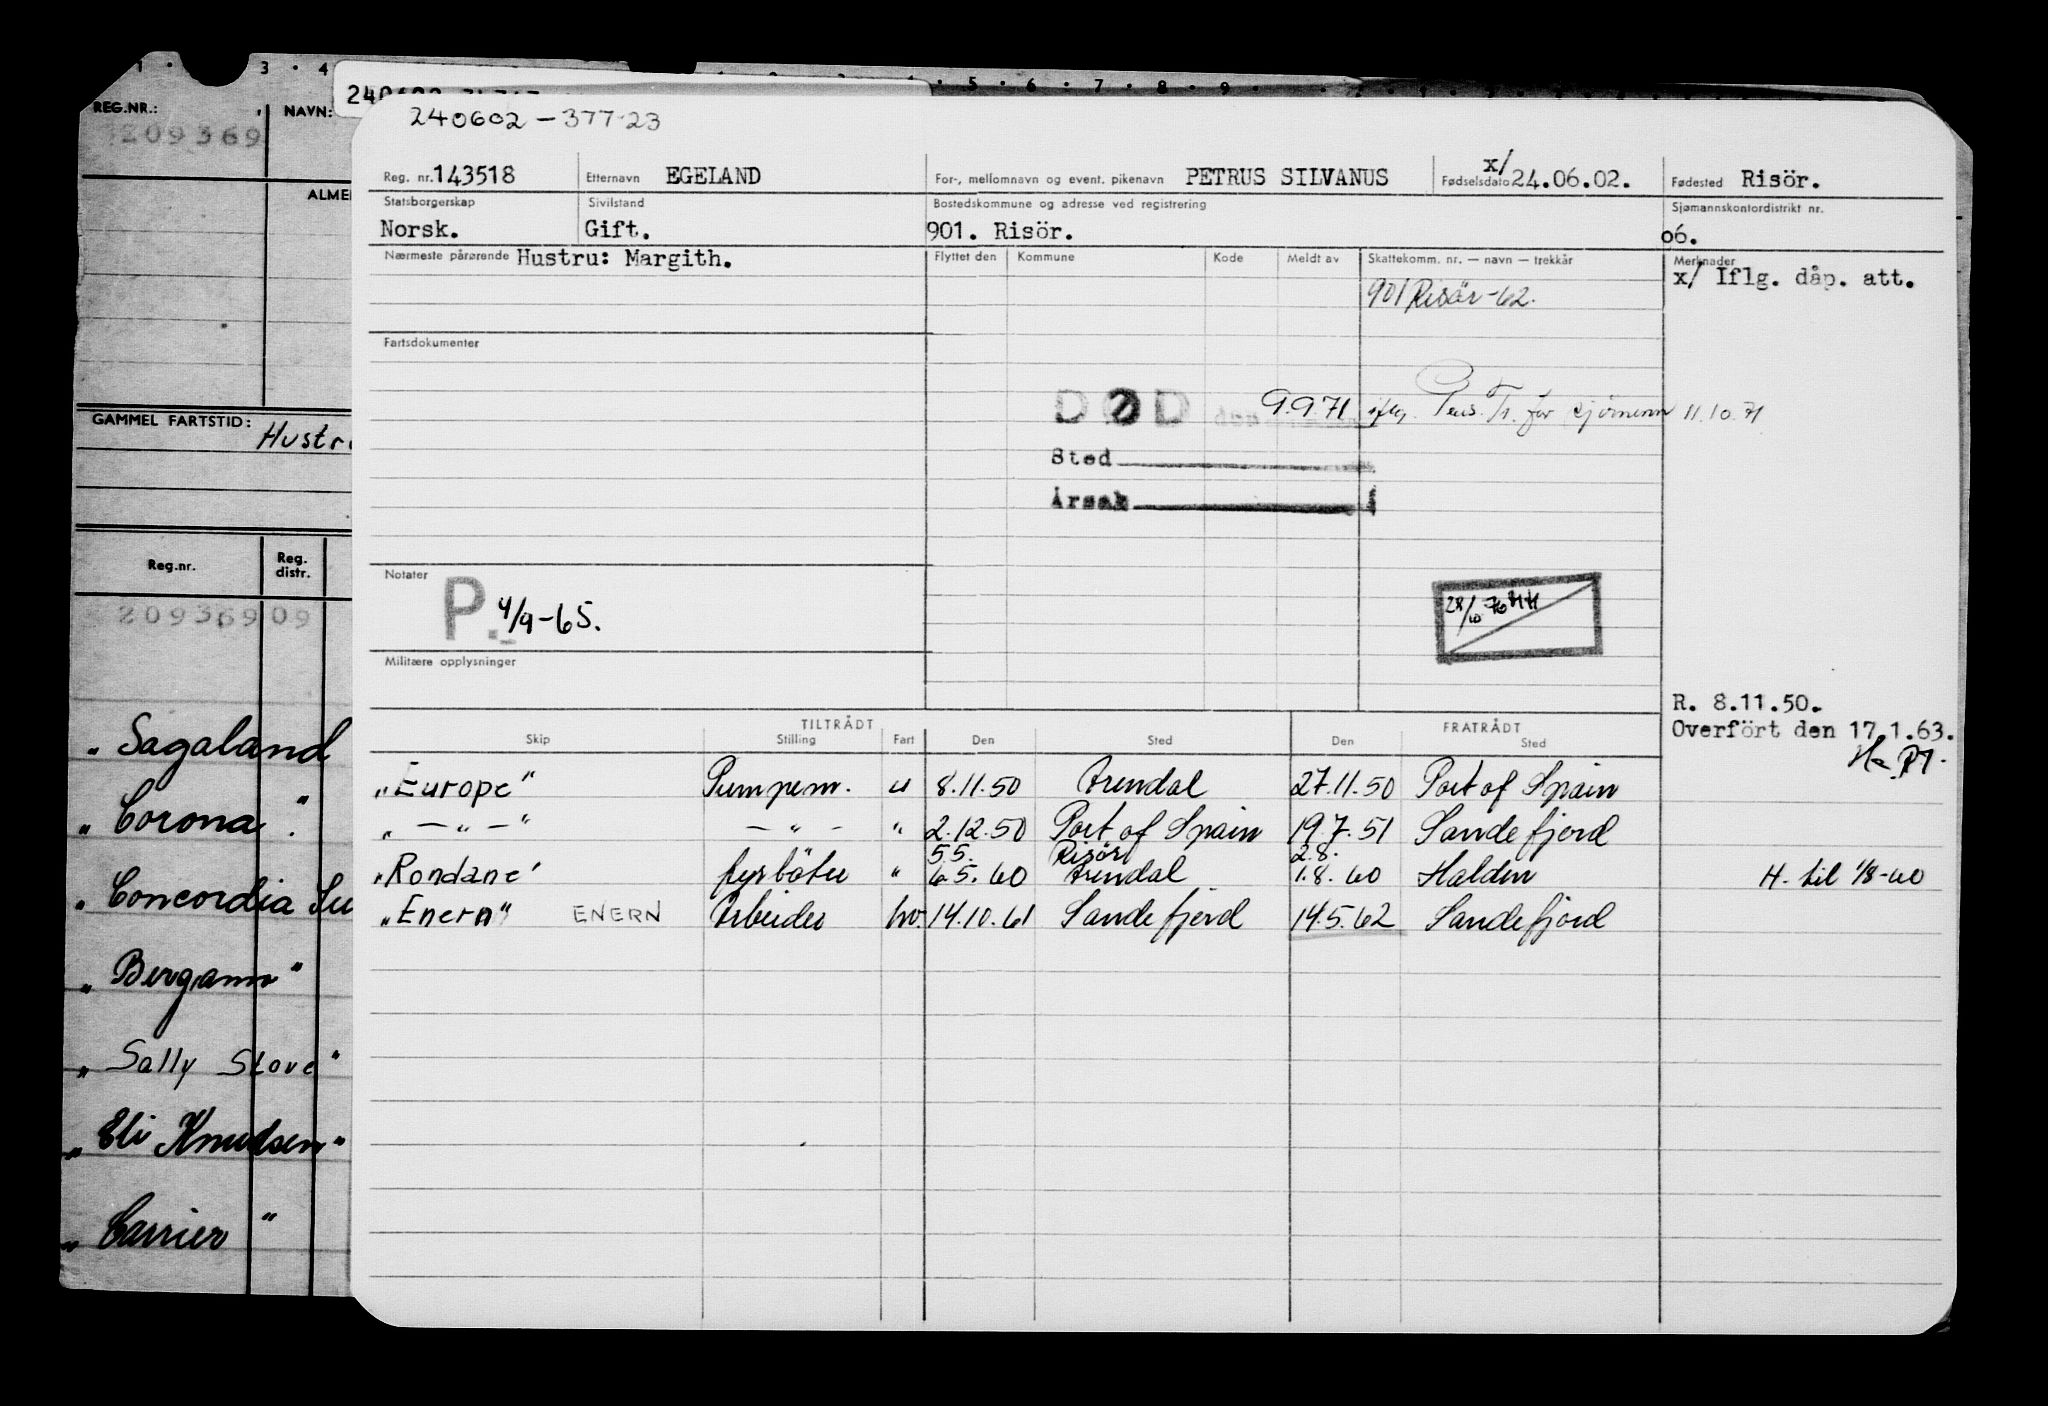 1 3 4 5 6 7 8 9
REG.NR.: NAVN:
209369
ALME
GAMMEL FARTSTID: Hustr
Reg.nr. Reg. distr.
20936909
„ Sagaland
„ Corona "
„ Concordia Su
„ Bergamo "
„ Sally Stove "
„ Eli Knudsen "
„ Carrier "
240602-377-23
Reg. nr. 143518 Etternavn EGELAND For-, mellomnavn og event. pikenavn PETRUS SILVANUS Fødselsdato x/ 24.06.02. Fødested Risör.
Statsborgerskap Sivilstand Bostedskommune og adresse ved registrering Sjømannskontordistrikt nr.
Norsk. Gift. 901. Risör. 06.
Nærmeste pårørende Hustru: Margith. Flyttet den Kommune Kode Meldt av Skattekomm. nr. — navn — trekkår Merknader
x/ Iflg. dåp. att.
901 Risör -62.
Fartsdokumenter
DØD den 9.9.71 iflg. Pens. Tr. for sjømenn 11.10.71
Sted
Årsak
Notater
P. 4/9-65.
28/10-76 HH
Militære opplysninger
R. 8.11.50.
Overfört den 17.1.63.
TILTRÅDT FRATRÅDT
Skip Stilling Fart Den Sted Den Sted
„Europe" Pumpem. u 8.11.50 Arendal 27.11.50 Port of Spain
„ — " — " — " — " 2.12.50 Port of Spain 19.7.51 Sandefjord
5.5. Risör 2.8.
„Rondane" fyrböter " 6.5.60 Arendal 1.8.60 Halden H. til 1/8-60
„Enern" ENERN Arbeider hv. 14.10.61 Sandefjord 14.5.62 Sandefjord